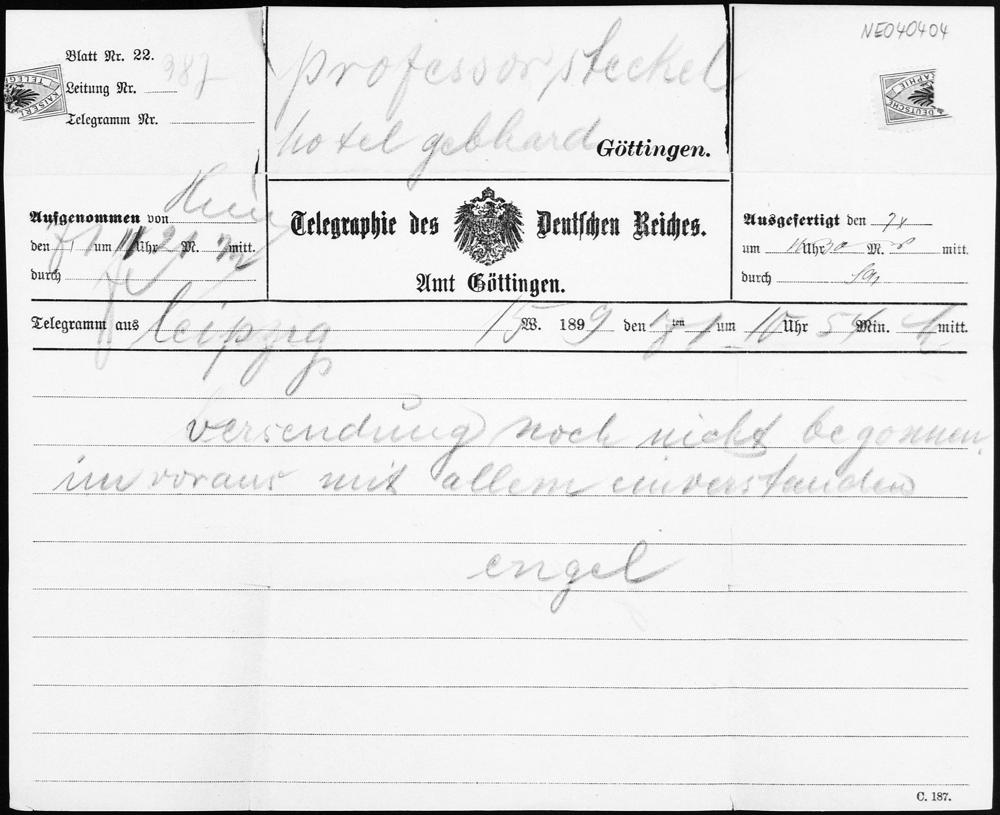 NE040404
Blatt Nr. 22.
Leitung Nr. 987
Telegramm Nr.
professor steckel
hotel gebhard Göttingen.
Aufgenommen von
den um 11 Uhr 21 M. mitt.
durch
Telegraphie des Deutschen Reiches.
Amt Göttingen.
Ausgefertigt den
um Uhr 30 M. mitt.
durch
Telegramm aus leipzig 15 W. 1899 den ten um 10 Uhr 54 Min. mitt.
versendung noch nicht begonnen,
im voraus mit allem einverstanden
engel
C. 187.